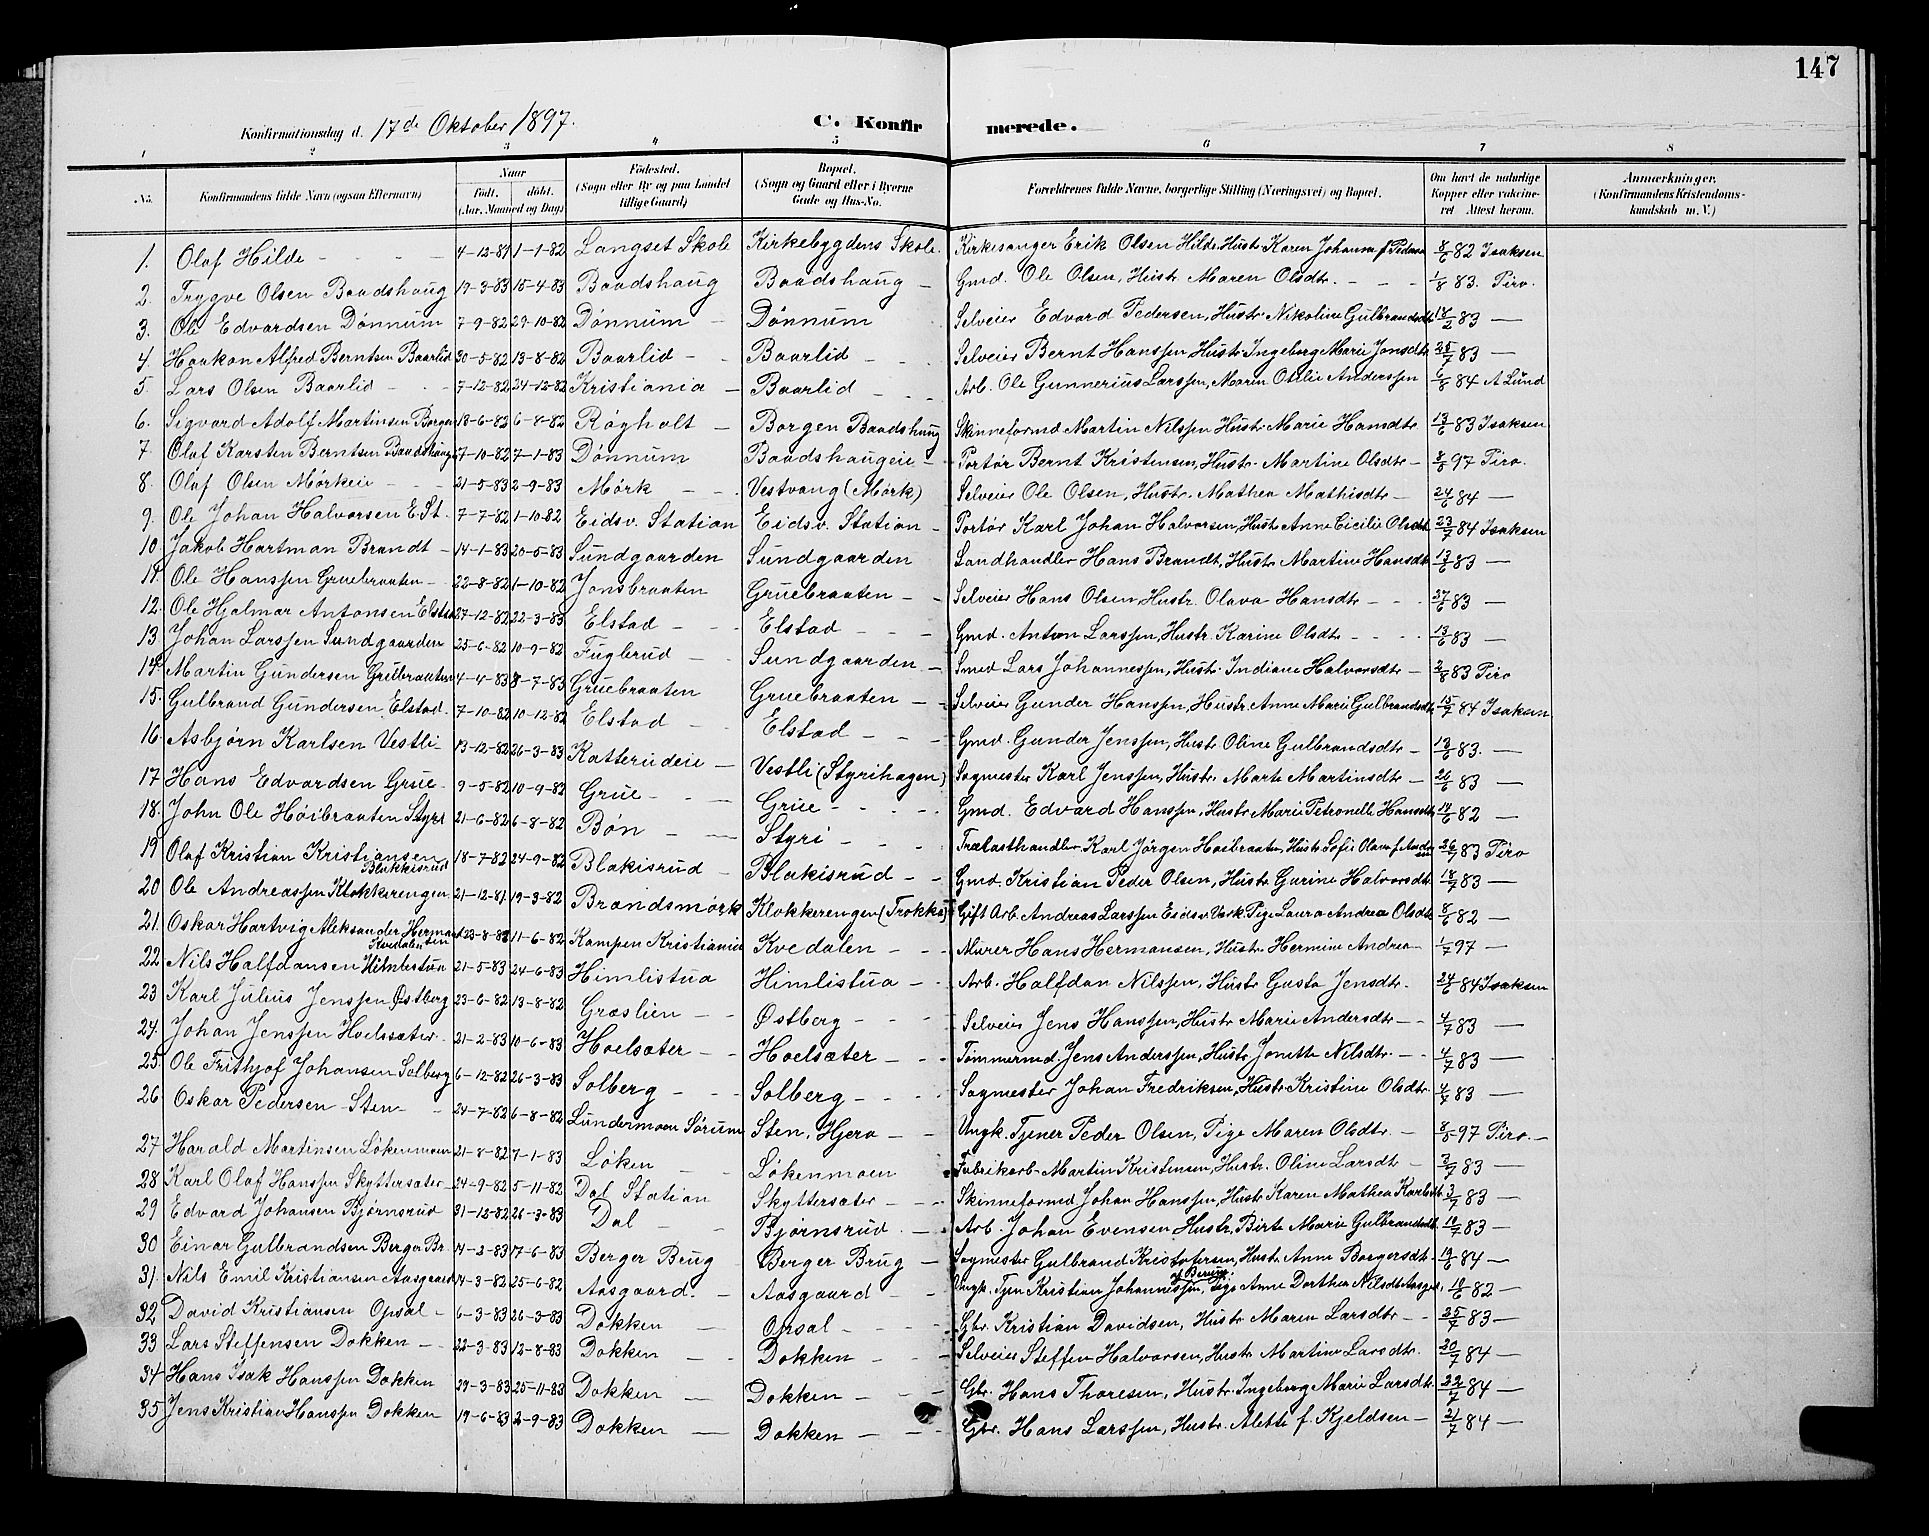 147
Konfirmationsdag d. 17de Oktober 1897. C. Konfirmerede.
1 2 3 4 5 6 7 8
No. Konfirmandens fulde Navn (ogsaa Efternavn) Naar født. døbt. (Aar, Maaned og Dag) Fødested. (Sogn eller By og paa Landet tillige Gaard) Bopæl. (Sogn og Gaard eller i Byerne Gade og Hus-No. Forældrenes fulde Navne, borgerlige Stilling (Næringsvei) og Bopæl. Om havt de naturlige Kopper eller vaccineret Attest herom. Anmerkninger. (Konfirmandens Kristendomskundskab m. V.)
1. Olaf Hilde 4-12-81 1-1-82 Langset Skole Kirkebygdens Skole Kirkesanger Erik Olsen Hilde, Hustr. Karen Johanna f. 8/6 82 Isaksen
2. Trygve Olsen Baadshaug 19-3-83 15-4-83 Baadshaug Baadshaug Gmd. Ole Olsen, Hustr. Maren Olsdtr. 1/8 83. Piro.
3. Ole Edvardsen Dønnum 7-9-82 29-10-82 Dønnum Dønnum Selveier Edvard Pedersen, Hustr. Nikoline Gulbrandsdtr 18/2 83 —
4. Haakon Alfred Berntsen Baarlid 30-5-82 13-8-82 Baarlid Baarlid Selveier Bernt Hanssen, Hustr. Ingeborg Marie Jonsdtr 25/7 83 —
5. Lars Olsen Baarlid 7-12-82 24-12-82 Kristiania Baarlid Arb. Ole Gunnerius Larssen, Maren Otilie Anderssen 6/8 84 A Lund
6. Sigvard Adolf Martinsen Borgen 18-6-82 6-8-82 Røgholt Borgen Baadshaug Skinneformd Martin Nilssen Hustr. Marie Hansdtr 13/6 83 Isaksen
7. Olaf Karsten Berntsen Baadshaug 7-10-82 7-1-83 Dønnum Baadshaugeie Portør Bernt Kristensen, Hustr. Martine Olsdtr 8/5 97 Piro.
8. Olaf Olsen Mørkeie 21-5-83 2-9-83 Mørk Vestvang (Mørk) Selveier Ole Olsen, Hustr. Mathea Mathisdtr 24/6 84 —
9. Ole Johan Halvorsen E. St. 7-7-82 1-10-82 Eidsv. Station Eidsv. Station Portør Karl Johan Halvorsen, Hustr. Anne Cicilie Olsdtr. 23/7 84 Isaksen
10 Jakob Hartman Brandt 14-1-83 20-5-83 Sundgaarden Sundgaarden Landhandler Hans Brandt, Hustr. Martine Hansdtr. 13/6 83 —
11. Ole Hanssen Gruebraaten 22-8-82 1-10-82 Jonsbraaten Gruebraaten Selveier Hans Olsen, Hustr. Olava Hansdtr 27/6 83 —
12. Ole Hjalmar Antonsen Elstad 27-12-82 22-3-83 Elstad Elstad Gmd. Anton Larssen, Hustr. Karine Olsdtr 13/6 83 —
13 Johan Larssen Sundgaarden 25-6-82 10-9-82 Fuglerud Sundgaarden Smed Lars Johannessen, Hustr. Indiane Halvorsdtr 2/8 83 Piro
14 Martin Gundersen Gruebraaten 4-4-83 8-7-83 Gruebraaten Gruebraaten Selveier Gunder Hanssen, Hustr. Anne Marie Gulbrandsdtr 15/7 84 Isaksen
15. Gulbrand Gundersen Elstad. 7-10-82 10-12-82 Elstad Elstad Gmd. Gunder Jenssen, Hustr. Oline Gulbrandsdtr 13/6 83. —
16 Asbjørn Karlsen Vestli 13-12-82 26-3-83 Katterudeie Vestli (Styrihagen) Sagmester Karl Jenssen, Hustr. Marte Martinsdtr 26/6 83 —
17 Hans Edvardsen Grue 9-5-82 10-9-82 Grue Grue Gmd. Edvard Hanssen, Hustr. Marie Petronelle Hansdtr 14/6 82 —
18. John Ole Høibraaten Styri 21-6-82 6-8-82 Bøn Styri Trælasthandler Karl Jørgen Høibraaten, Hustr. Sofie Olava f. Andersen 26/7 83 Piro
19 Olaf Kristian Kristiansen Blakkisrud 18-7-82 24-9-82 Blakisrud Blakisrud Gmd. Kristian Peder Olsen, Hustr. Gurine Halvorsdtr 18/7 83 —
20 Ole Andreassen Klokkerengen 21-12-81 19-3-82 Brandsmørk Klokkerengen (Trokka) Gift Arb. Andreas Larssen Eidsv. Værk. Pige Laura Andrea Olsdtr. 8/6 82 —
21. Oskar Hartvig Aleksander Hermansen Kvedalen 23-8-81 11-6-82 Kampen Kristiania Kvedalen Murer Hans Hermansen, Hustr. Hermine Andrea 1/7 97 —
22 Nils Halfdansen Himlestua 21-5-83 24-6-83 Himlistua Himlistua Arb. Halfdan Nilssen, Hustr. Gusta Jensdtr. 24/6 84 Isaksen
23 Karl Julius Jenssen Østberg 23-6-82 13-8-82 Græslien Østberg Selveier Jens Hanssen, Hustr. Marie Andersdtr 4/7 83 —
24. Johan Jenssen Hoelsæter 21-2-83 10-6-83 Hoelsæter Hoelsæter Tømmermd. Jens Anderssen, Hustr. Jonette Nilsdtr. 4/7 83 —
25. Ole Frithjof Johansen Solberg 6-12-82 26-3-83 Solberg Solberg Sagmester Johan Fredriksen, Hustr. Kristine Olsdtr. 4/7 83 —
26 Oskar Pedersen Sten 24-7-82 6-8-82 Lundermoen Sørum Sten, Hjera Ungk. Tjener Peder Olsen, Pige Maren Olsdtr. 8/5 97 Piro.
27 Harald Martinsen Løkenmoen 21-8-82 7-1-83 Løken Løkenmoen Fabrikarb. Martin Kristensen, Hustr. Oline Larsdtr 3/7 83 —
28 Karl Olaf Hanssen Skyttersæter 24-9-82 5-11-82 Dal Station Skyttersæter Skinneformd Johan Hanssen, Hustr. Karen Mathea Karlsdtr. 3/7 83 —
29 Edvard Johansen Bjørnsrud 31-12-82 26-3-83 Dal Bjørnsrud Arb. Johan Evensen Hustr. Birte Marie Gulbrandsdtr. 10/7 83 —
30 Einar Gulbrandsen Berger Br. 14-2-83 17-6-83 Berger Brug Berger Brug Sagmester Gulbrand Kristofersen, Hustr. Anne Borgersdtr. 19/6 84 —
31. Nils Emil Kristiansen Aasgaard 14-3-82 25-6-82 Aasgaard. Aasgaard Ungk. Tjen Kristian Johannessen, Pige Anne Dorthea Nilsdtr Aasgrd. 10/6 82 —
32 David Kristiansen Opsal 6-3-83 26-3-83 Dokken Opsal Gbr. Kristian Davidsen, Hustr. Maren Larsdtr 25/7 83 —
33 Lars Steffensen Dokken 22-3-83 12-8-83 Dokken Dokken Selveier Steffen Halvorsen, Hustr. Martine Larsdtr. 20/7 84 —
34 Hans Isak Hanssen Dokken 29-3-83 25-11-83 Dokken Dokken Gbr. Hans Thoresen, Hustr. Ingeborg Marie Larsdtr. 22/7 84 —
35 Jens Kristian Hanssen Dokken 19-6-83 2-9-83 Dokken Dokken Gbr. Hans Larssen, Hustr. Alette f. Kjeldsen 21/7 84 —